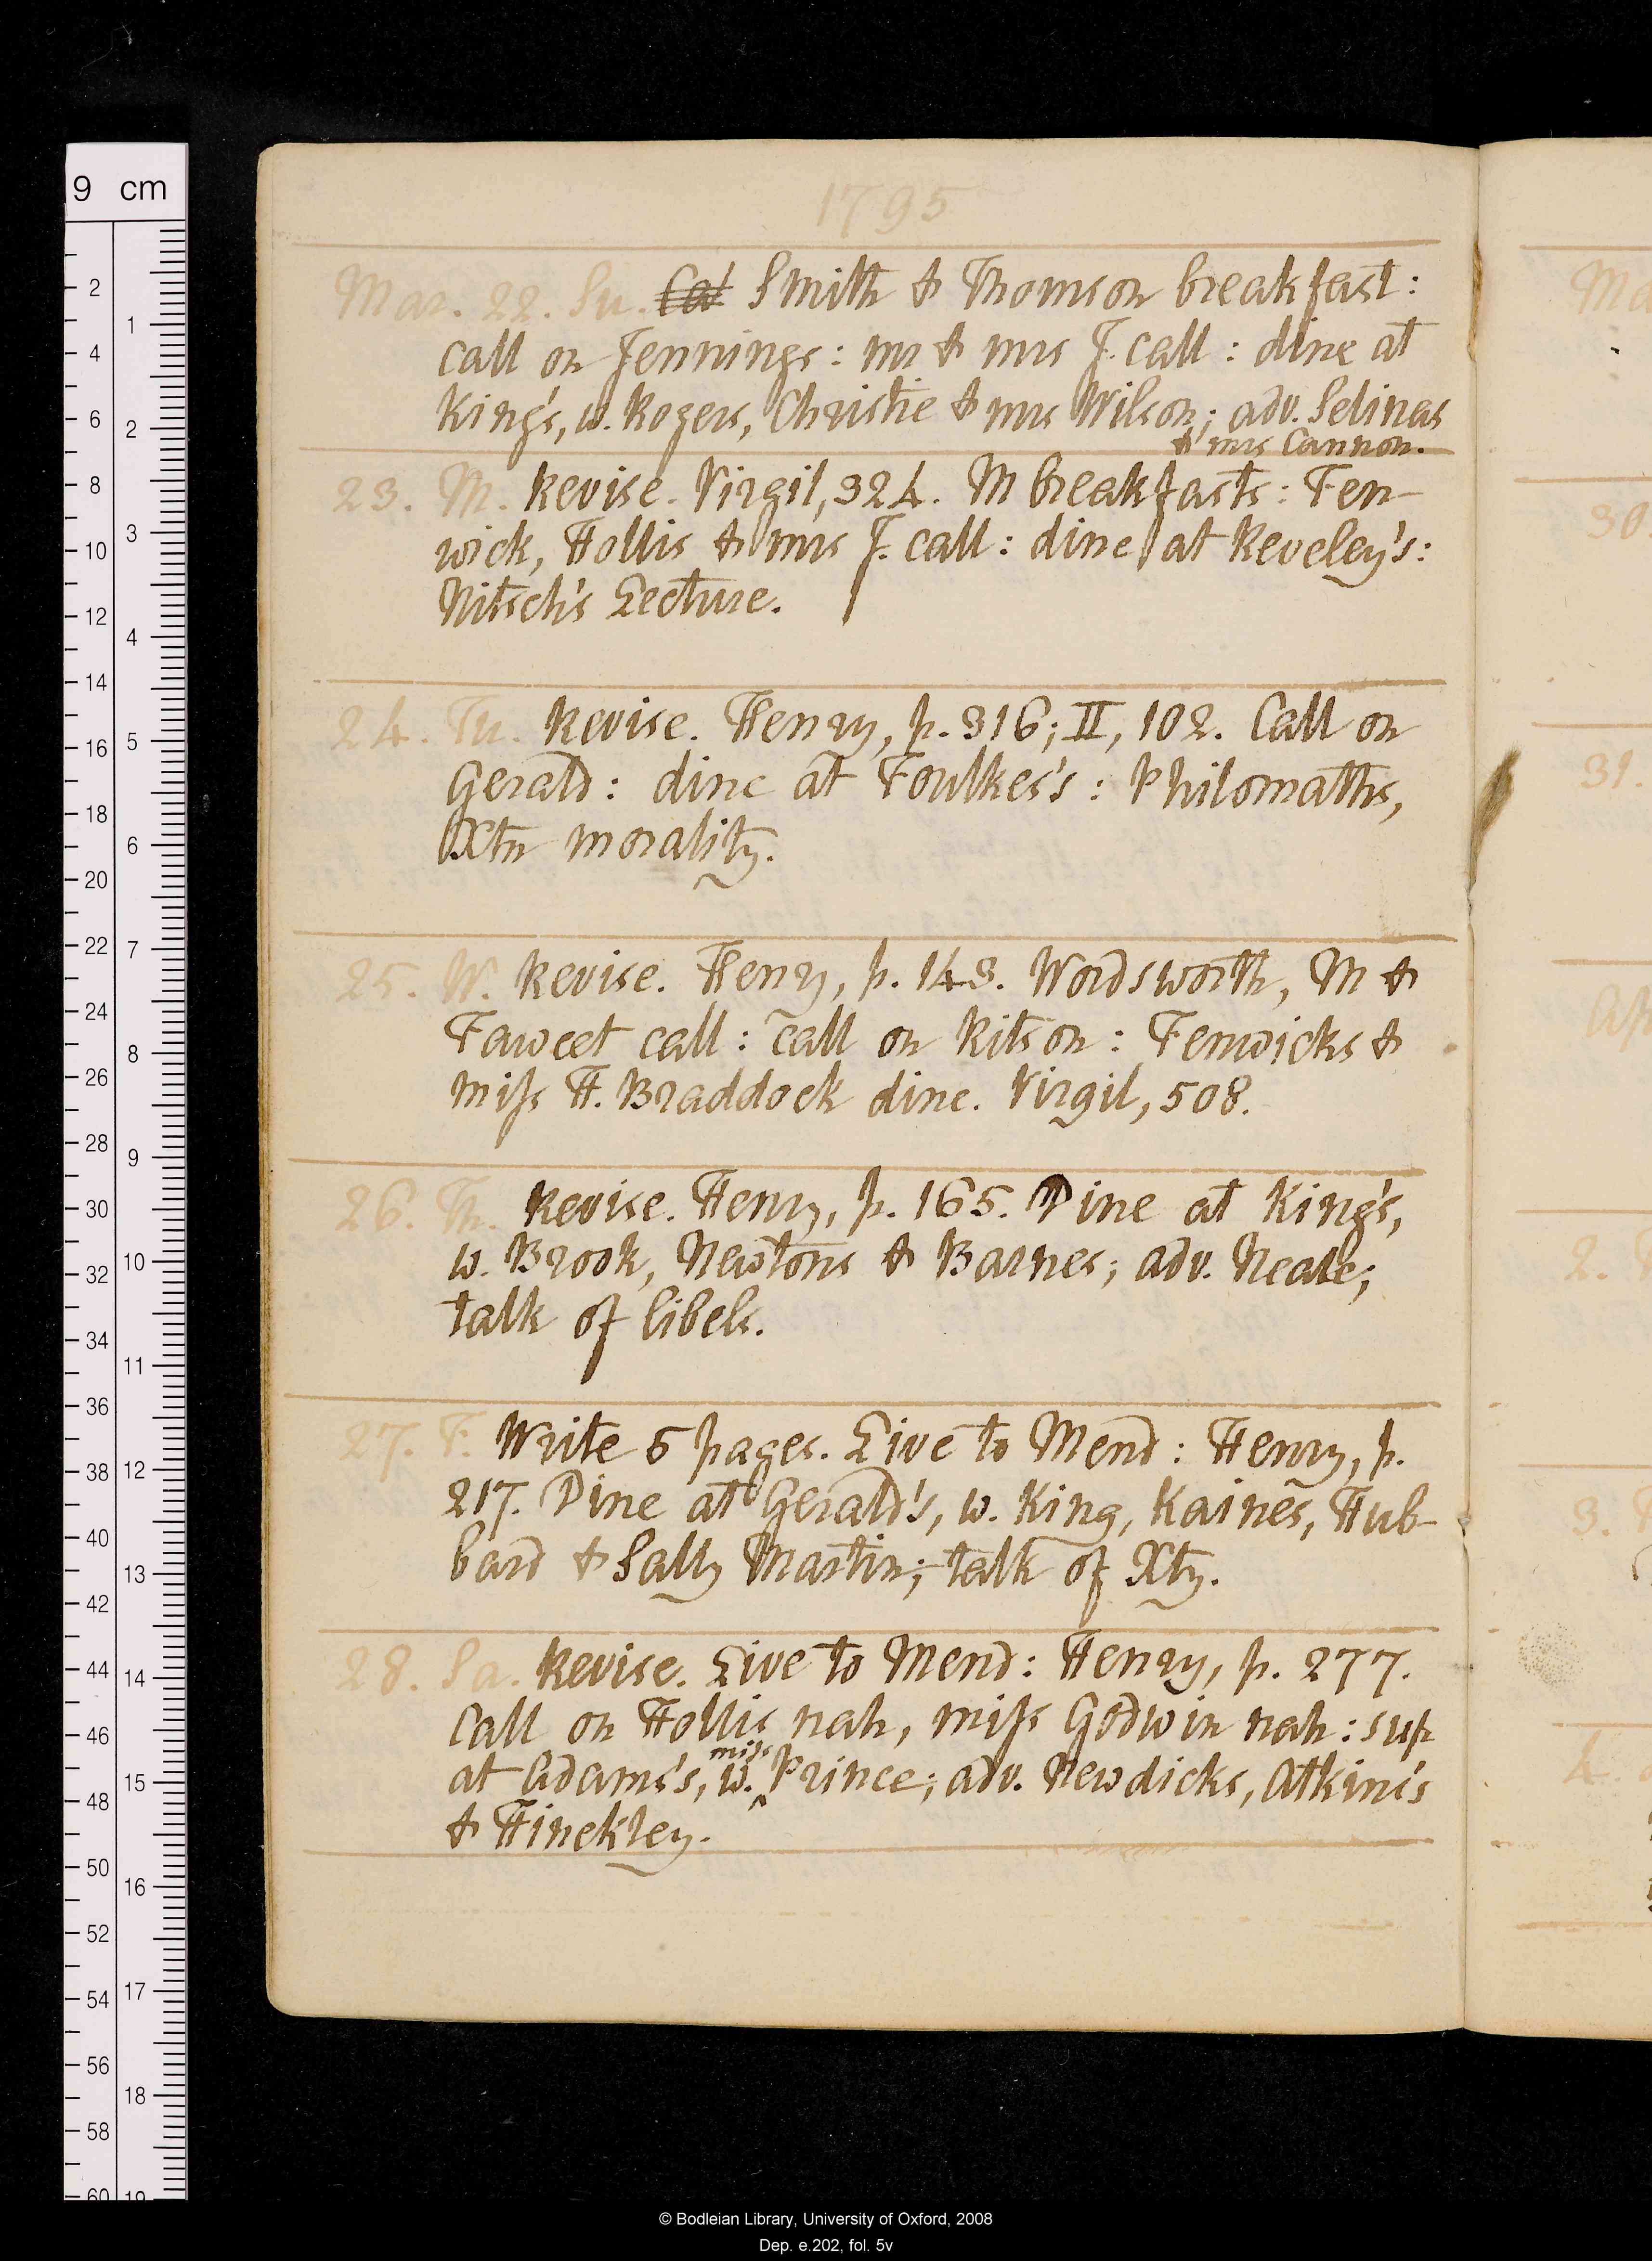 1795
Mar. 22. Su. Cal Smith & Thomson breakfast:
call on Jennings: mr & mrs J. call: dine at
King's, w. Rogers, Christie & mrs Wilson; adv. Selinas
& mrs Cannon.
23. M. Revise. Virgil, 324. M breakfasts: Fen-
wick, Hollis & mrs J. call: dine at Reveley's:
Nitsch's Lecture.
24. Tu. Revise. Henry, p. 316; II, 102. Call on
Gerald: dine at Foulkes's: Philomaths,
Xtn morality.
25. W. Revise. Henry, p. 143. Wordsworth, M &
Fawcet call: call on Ritson: Fenwicks &
miss H. Braddock dine. Virgil, 508.
26. Th. Revise. Henry, p. 165. Dine at King's,
w. Brook, Newtons & Barnes; adv. Neale;
talk of libels.
27. F. Write 5 pages. Live to Mend: Henry, p.
217. Dine at Gerald's, w. King, Kaines, Hub-
bard & Sally Martin; talk of Xty.
28. Sa. Revise. Live to Mend: Henry, p. 277.
Call on Hollis nah, miss Godwin nah: sup
at Adams's, w. miss Prince; adv. Newdicks, Atkins's
& Hinckley.
9 cm
2
4
6
8
10
12
14
16
18
20
22
24
26
28
30
32
34
36
38
40
42
44
46
48
50
52
54
56
58
60
1
2
3
4
5
6
7
8
9
10
11
12
13
14
15
16
17
18
19
Ma
30.
31.
Ap
2.
3.
4.
© Bodleian Library, University of Oxford, 2008
Dep. e.202, fol. 5v